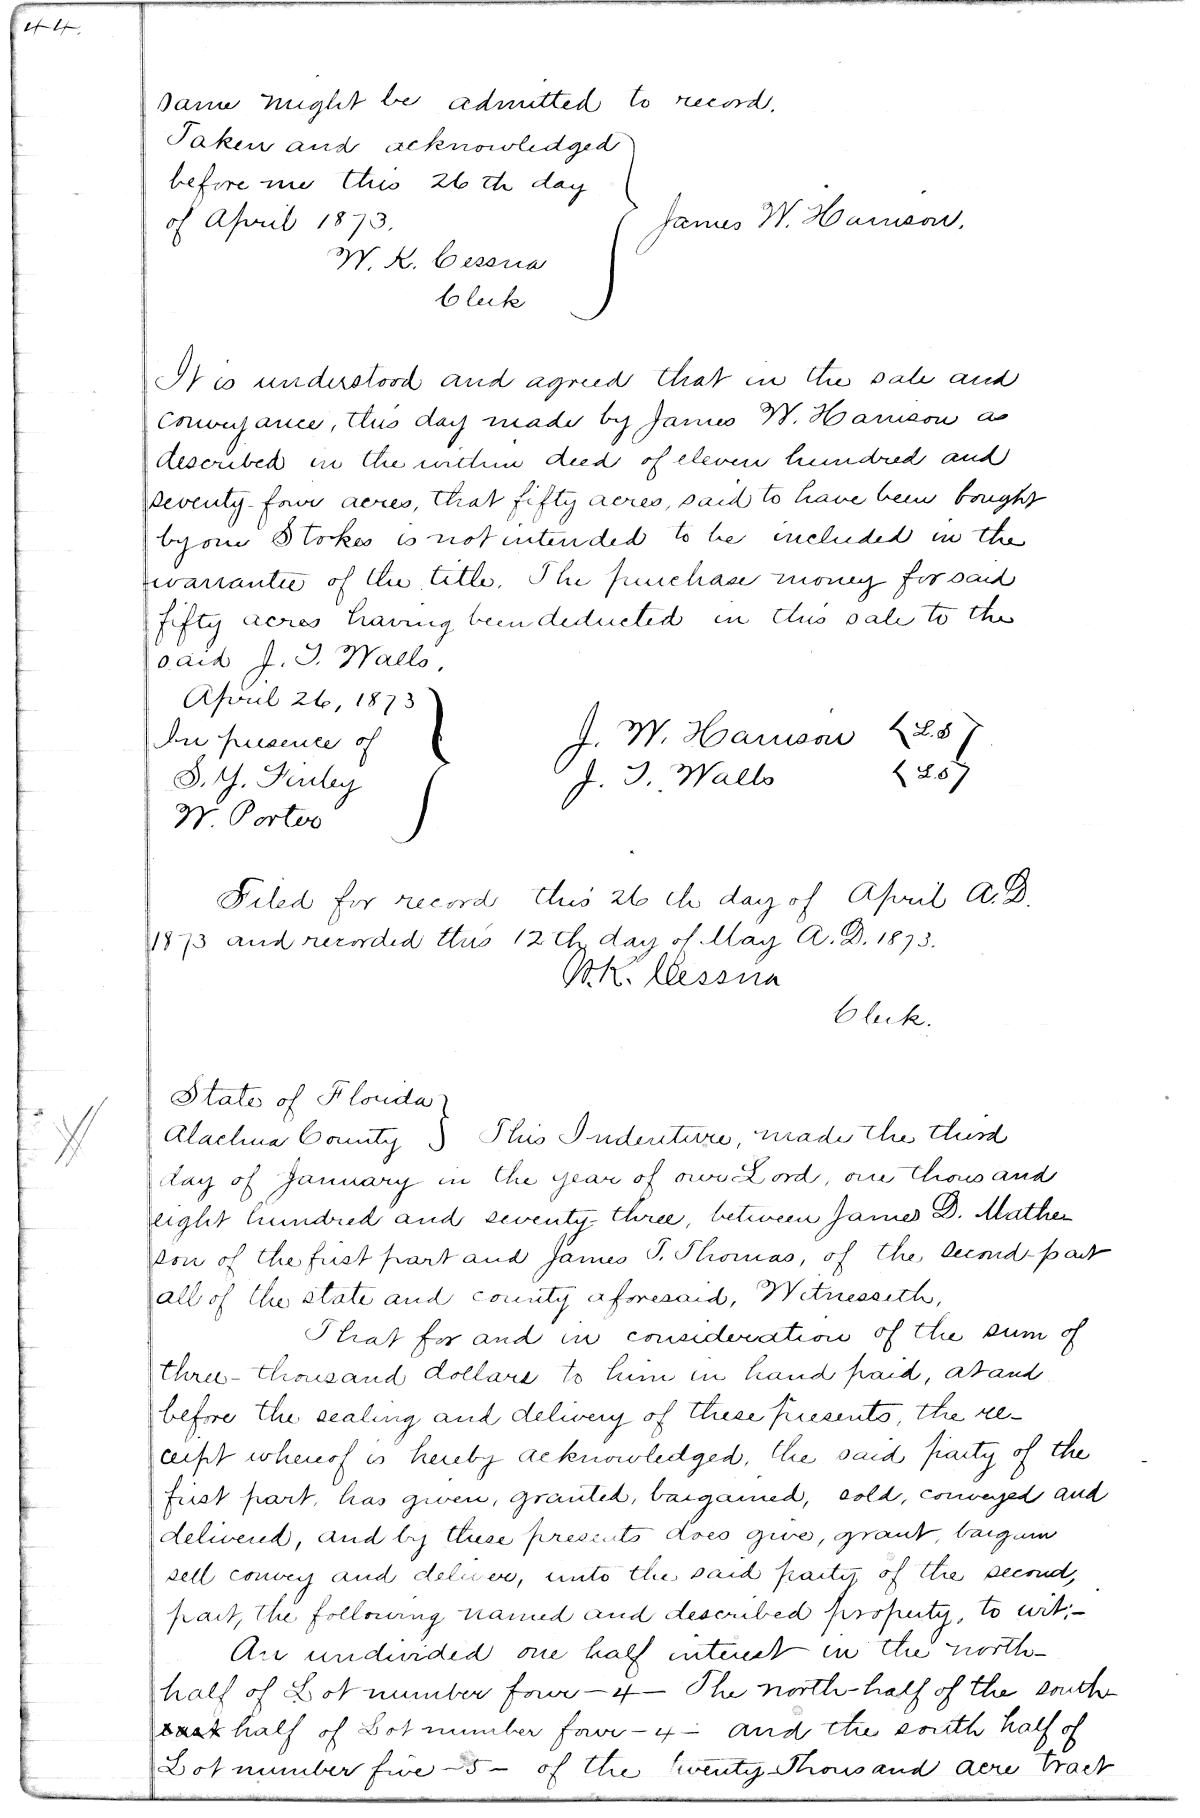 44.
same might be admitted to record.
Taken and acknowledged
before me this 26th day
of April 1873.
James W. Harrison.
W. K. Cessna
Clerk
It is understood and agreed that in the sale and
conveyance, this day made by James W. Harrison as
described in the within deed of eleven hundred and
seventy-four acres, that fifty acres, said to have been bought
by one Stokes is not intended to be included in the
warrantee of the title. The purchase money for said
fifty acres having been deducted in this sale to the
said J. T. Walls.
April 26, 1873
In presence of
J. W. Harrison {L.S}
S. Y. Finley
J. T. Walls {L.S}
W. Porter
Filed for record this 26th day of April A.D.
1873 and recorded this 12th day of May A.D. 1873.
W.K. Cessna
Clerk.
State of Florida
Alachua County } This Indenture, made the third
day of January in the year of our Lord, one thousand
eight hundred and seventy-three, between James D. Mathe
son of the first part and James T. Thomas, of the second-part
all of the state and county aforesaid, Witnesseth,
That for and in consideration of the sum of
three-thousand dollars to him in hand paid, at and
before the sealing and delivery of these presents, the re-
ceipt whereof is hereby acknowledged, the said party of the
first part, has given, granted, bargained, sold, conveyed and
delivered, and by these presents does give, grant, bargain
sell convey and deliver, unto the said party of the second,
part, the following named and described property, to wit:-
An undivided one half interest in the north-
half of Lot number four-4- The north-half of the south-
half of Lot number four-4- and the south half of
Lot number five-5- of the twenty-Thousand acre tract